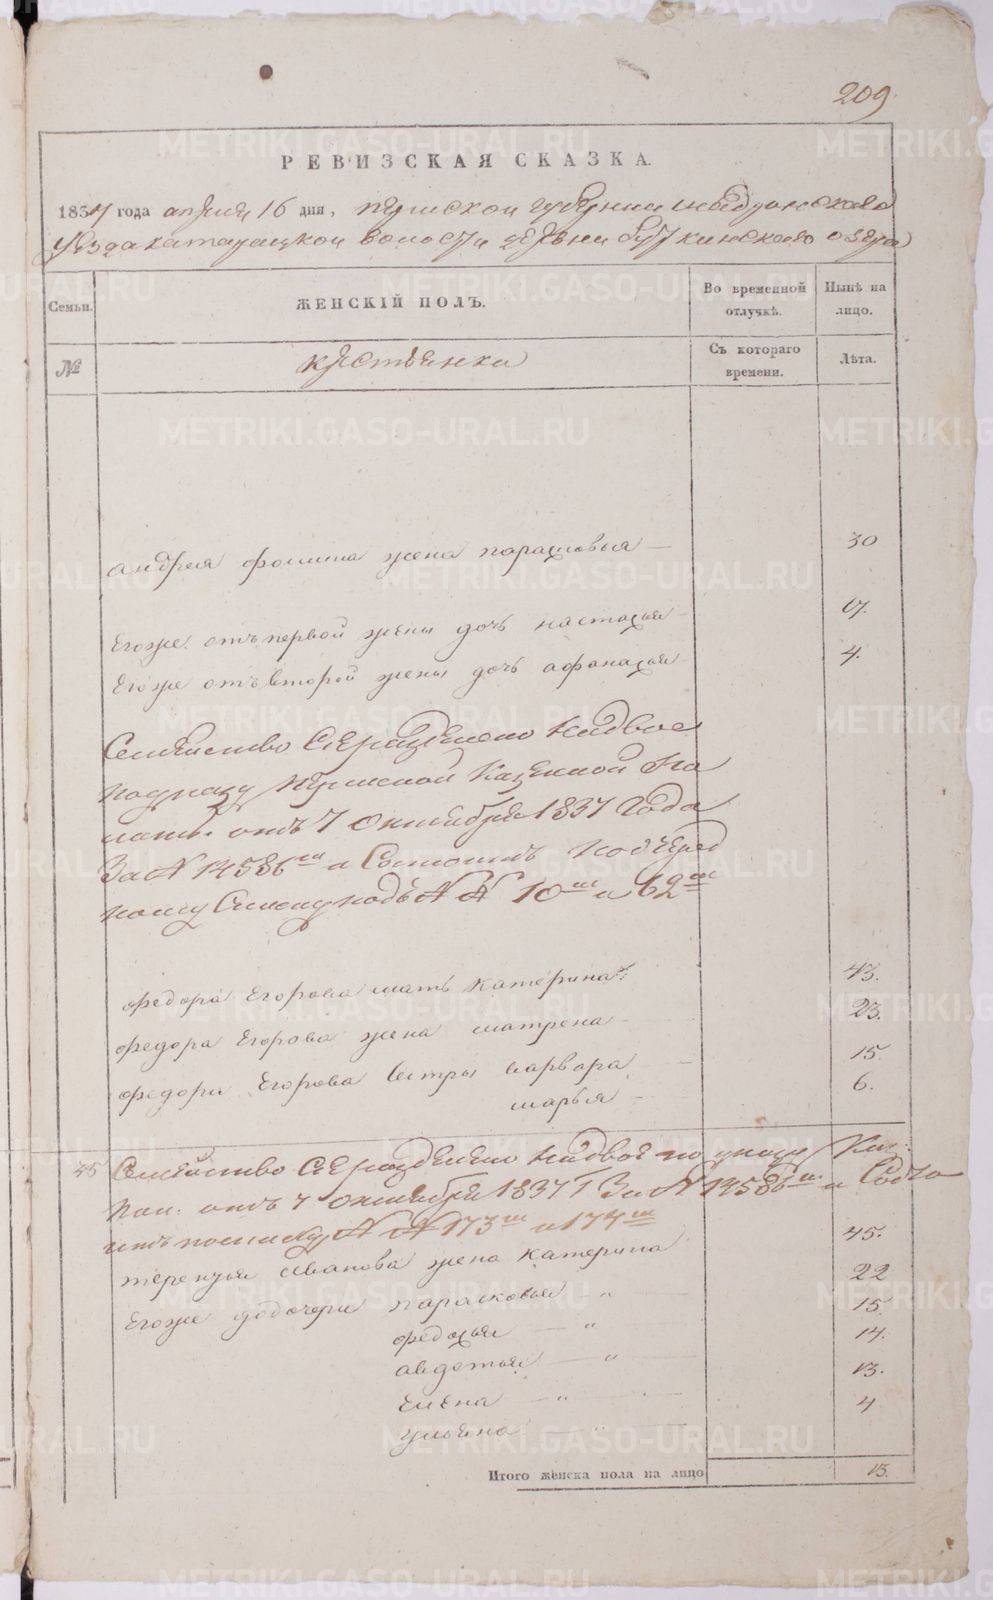 209.
РЕВИЗСКАЯ СКАЗКА.
1834 года апреля 16 дня, пермской губернии шадринскаго
уезда катарацкой волости деревни озера
Семьи.
ЖЕНСКІЙ ПОЛЪ.
Во временной отлучкѣ.
Нынѣ на лицо.
№
крестьянки
Съ котораго времени.
Лѣта.
андрея фомина жена парасковья 30
Егоже отъ первой жены дочь настасья 17.
Егоже отъ второй жены дочь афанасья 4.
Семейство СЕ разделено надвое
по указу Пермской Казенной Па
латы отъ 7 октября 1837 Года
За № 14586м и Состоитъ по очеред
ному Списку подъ № № 10м и 62м
федора Егорова мать катерина 43.
федора Егорова жена матрена 23.
федора Егорова сестры варвара 15.
марья 6.
45 Семейство СЕ разделено надвое по указу Каз:
Пал. отъ 7 октября 1837 Г За № 14586м и Состо
итъ по списку № № 173м и 174м
терентья иванова жена катерина 45.
Егоже дочери парасковья — " 22
федосья — " 15
авдотья — " 14.
Елена — " 13.
ульяна 4
Итого женска пола на лицо 13.
METRIKI.GASO-URAL.RU